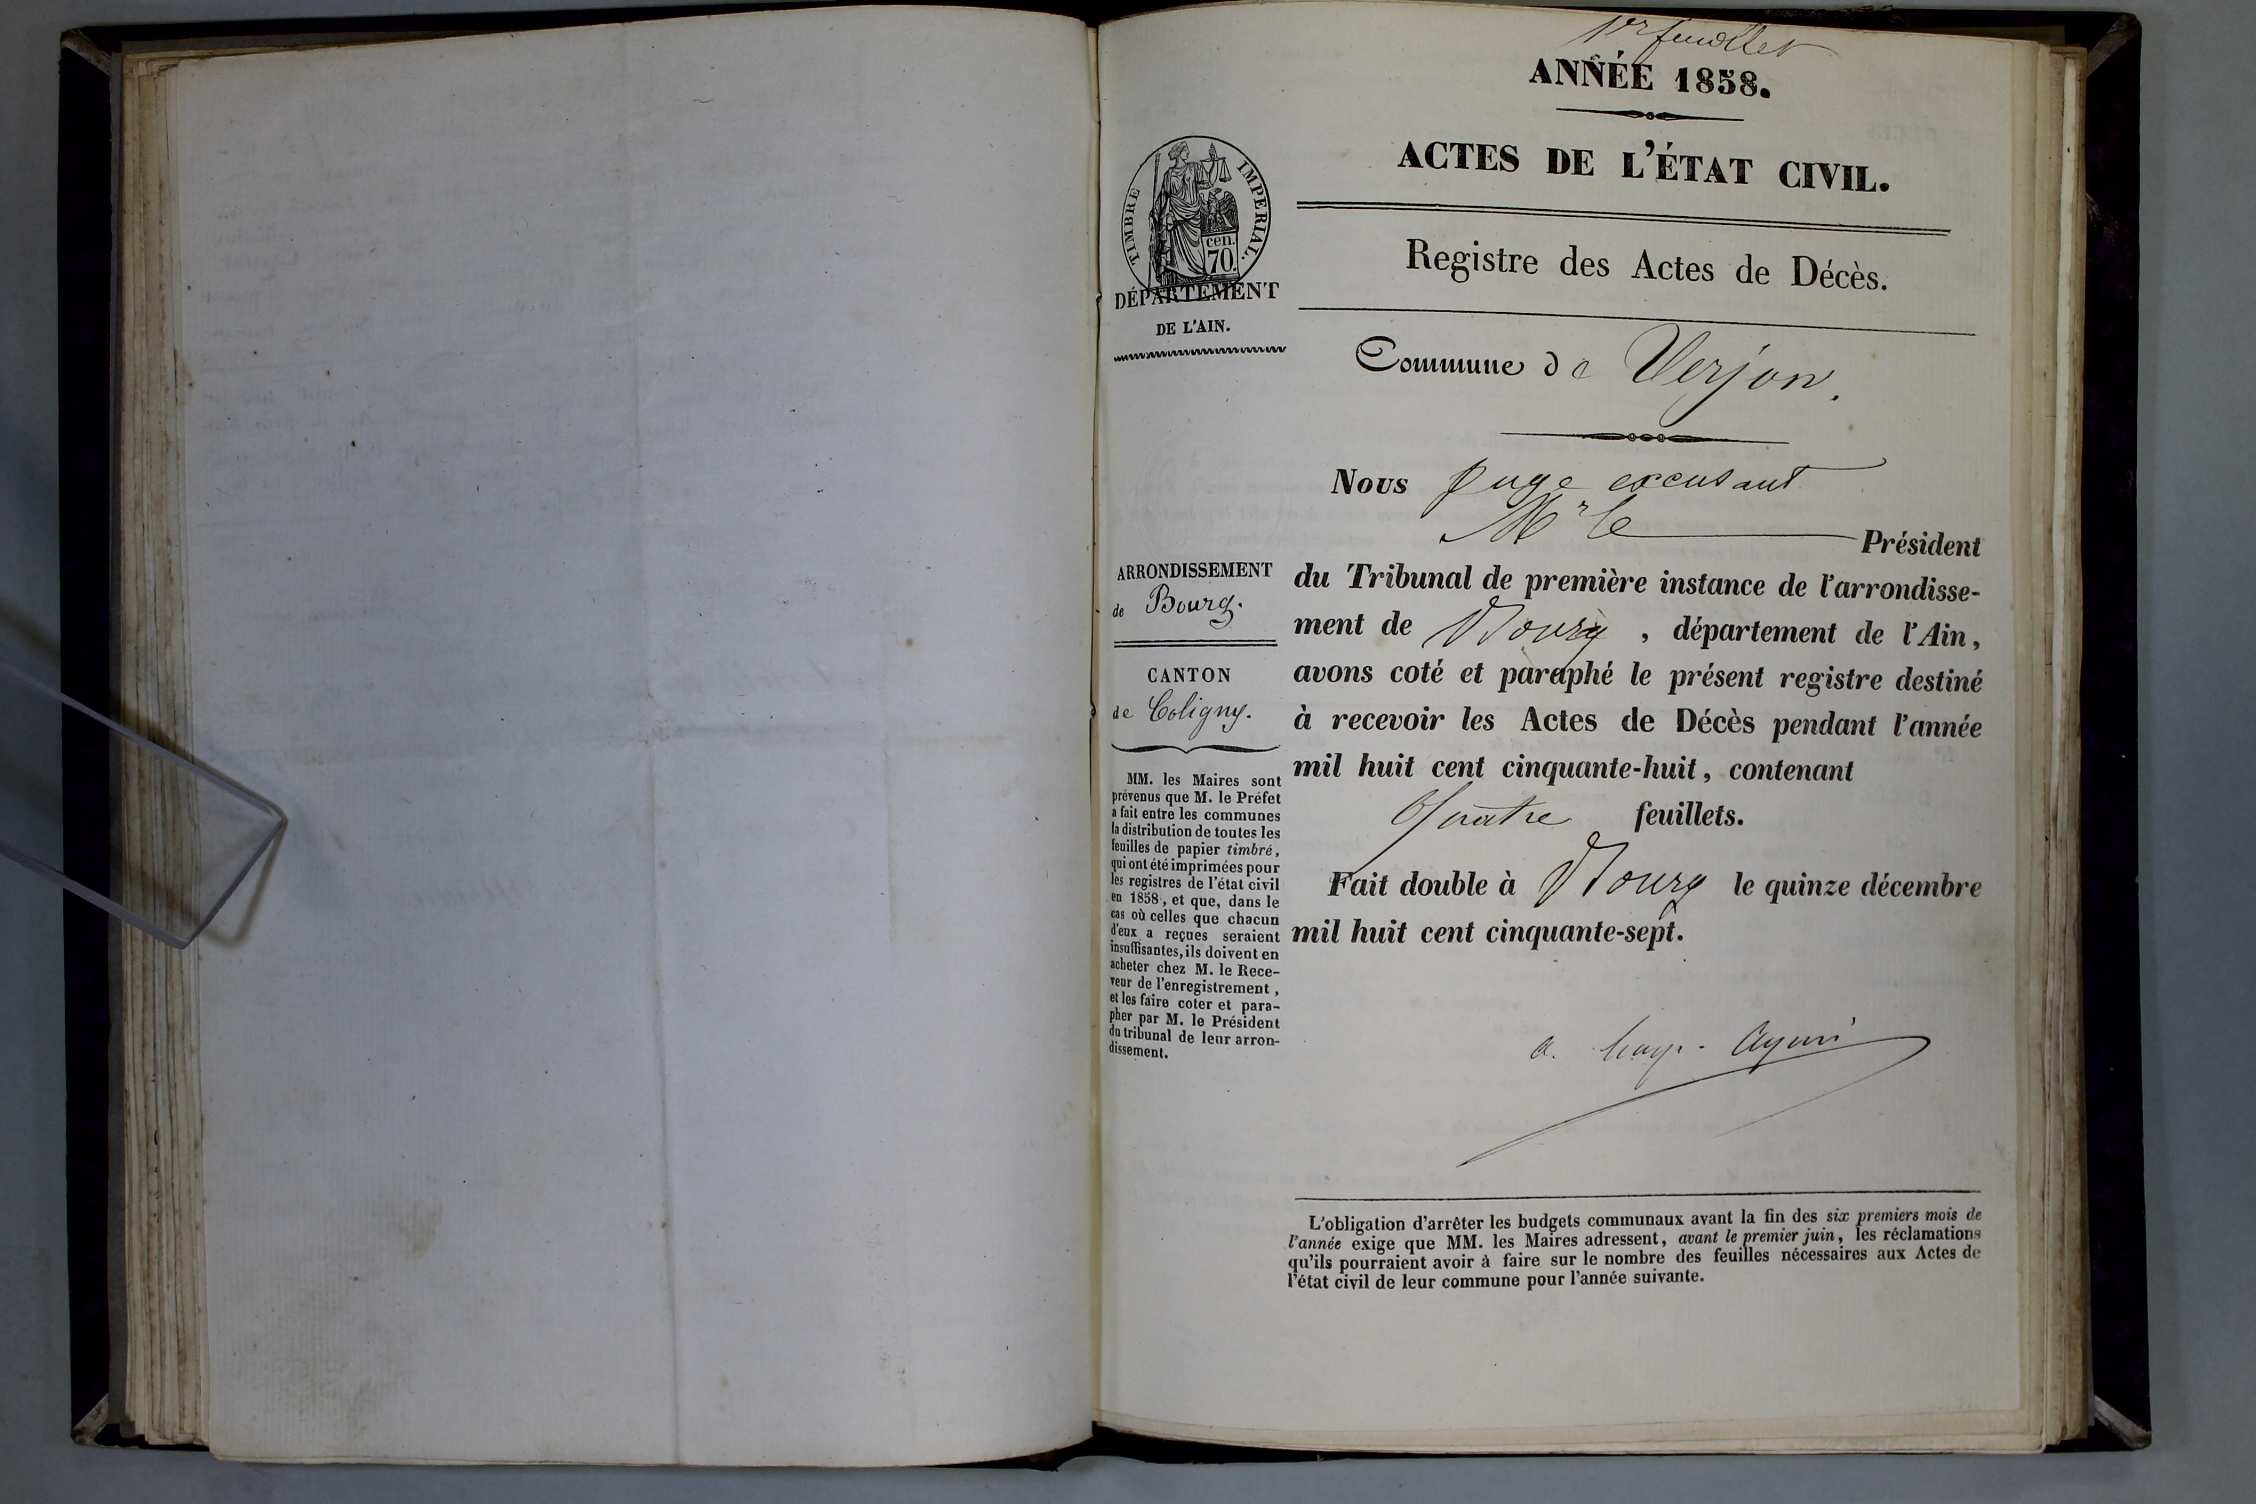 1er feuillet
ANNÉE 1858.
ACTES DE L'ÉTAT CIVIL.
TIMBRE IMPERIAL.
cen.
70.
DÉPARTEMENT
DE L'AIN.
Registre des Actes de Décès.
Commune de Verjon.
Nous juge excusant
Mr le Président
du Tribunal de première instance de l'arrondisse-
ment de Bourg, département de l'Ain,
avons coté et paraphé le présent registre destiné
à recevoir les Actes de Décès pendant l'année
mil huit cent cinquante-huit, contenant
Quatre feuillets.
Fait double à Bourg le quinze décembre
mil huit cent cinquante-sept.
ARRONDISSEMENT
de Bourg.
CANTON
de Coligny.
MM. les Maires sont
prévenus que M. le Préfet
a fait entre les communes
la distribution de toutes les
feuilles de papier timbré,
qui ont été imprimées pour
les registres de l'état civil
en 1858, et que, dans le
cas où celles que chacun
d'eux a reçues seraient
insuffisantes, ils doivent en
acheter chez M. le Rece-
veur de l'enregistrement,
et les faire coter et para-
pher par M. le Président
du tribunal de leur arron-
dissement.
L'obligation d'arrêter les budgets communaux avant la fin des six premiers mois de
l'année exige que MM. les Maires adressent, avant le premier juin, les réclamations
qu'ils pourraient avoir à faire sur le nombre des feuilles nécessaires aux Actes de
l'état civil de leur commune pour l'année suivante.